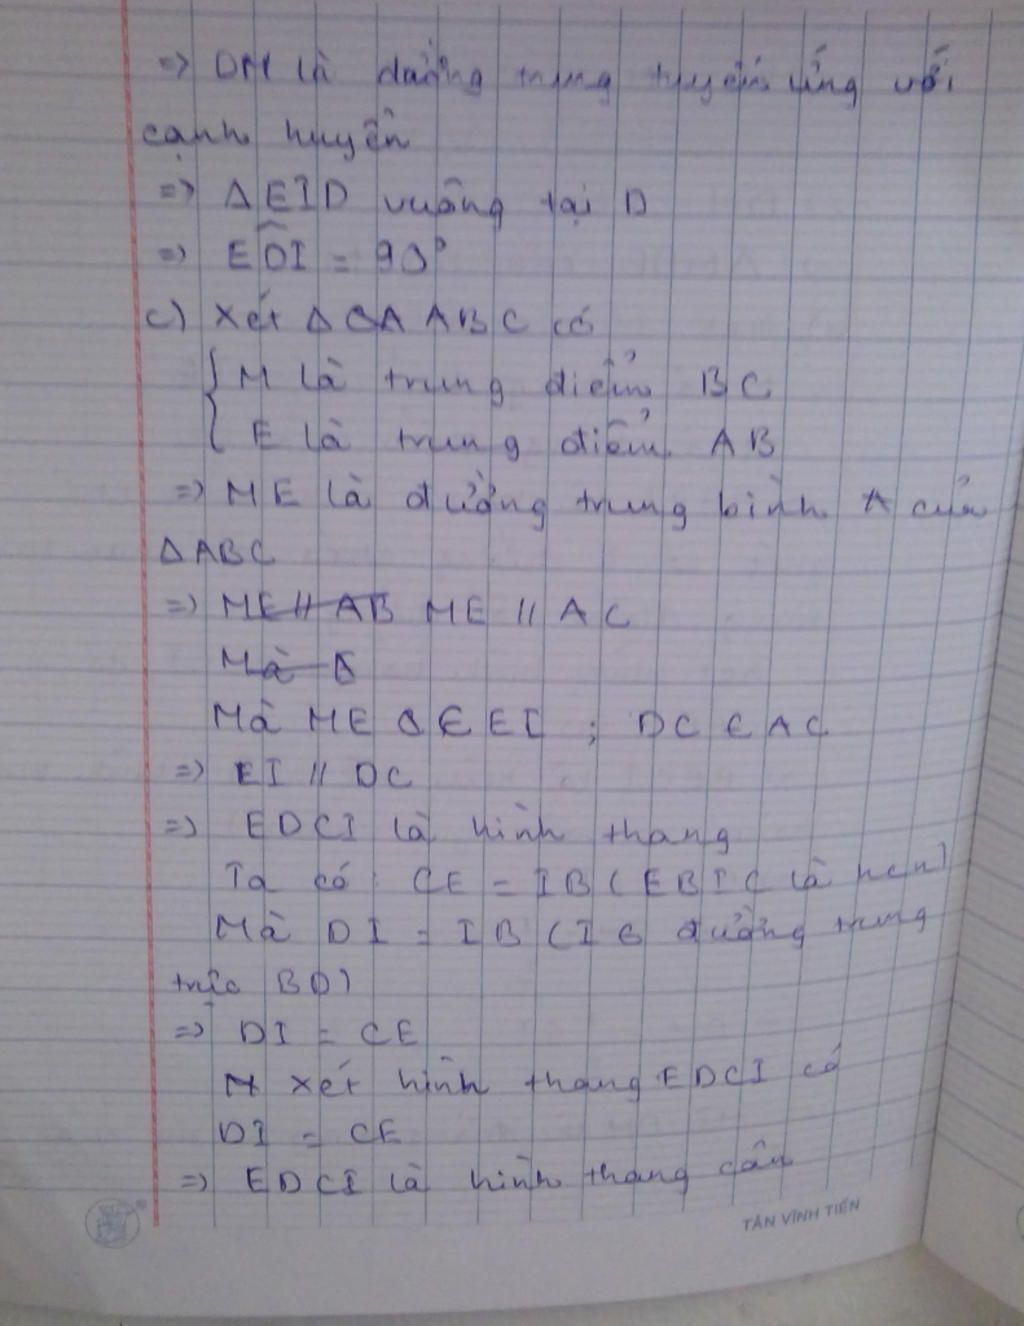 => DM là đường trung tuyến ứng với
cạnh huyền
=> ΔEID vuông tại D
=> EDI = 90°
c) Xét Δ ABC có
M là trung điểm BC
E là trung điểm AB
=> ME là đường trung bình của
ΔABC
=> ME // AB ME // AC
Mà
Mà ME ∈ EI ; DC ∈ AC
=> EI // DC
=> EDCI là hình thang
Ta có : CE = IB (EBIC là hcn)
Mà DI = IB (I ∈ đường trung
trực BD)
=> DI = CE
xét hình thang EDCI có
DI = CE
=> EDCI là hình thang cân
TÂN VĨNH TIẾN